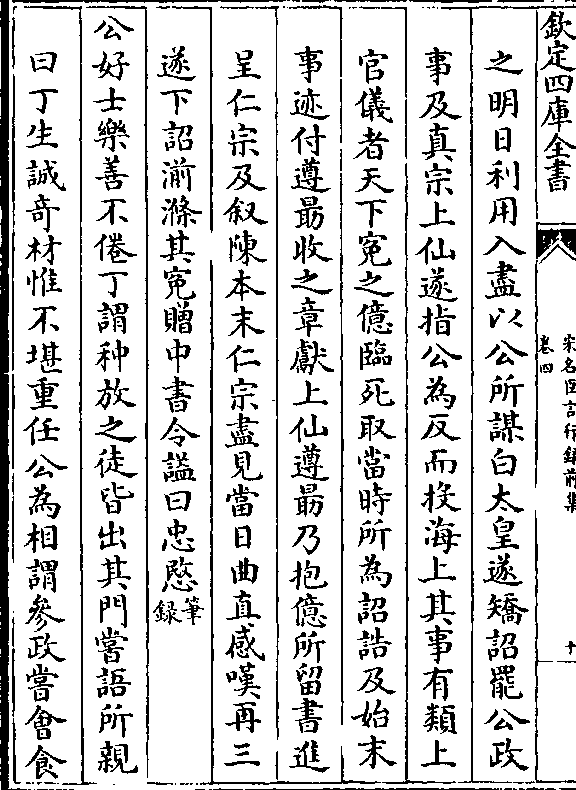 欽定四庫全書
宋名臣言行錄前集
卷四
十
之明日利用入盡以公所謀白太皇遂矯詔罷公政
事及真宗上仙遂指公為反而投海上其事有類上
官儀者天下寃之億臨死取當時所為詔誥及始末
事迹付遵朂收之章獻上仙遵朂乃抱億所留書進
呈仁宗及叙陳本末仁宗盡見當日曲直感嘆再三
遂下詔湔滌其寃贈中書令諡曰忠愍筆録
公好士樂善不倦丁謂种放之徒皆出其門嘗語所親
曰丁生誠奇材惟不堪重任公為相謂參政嘗會食